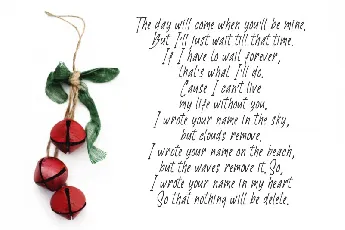 The day will come when you'll be mine.
But I'll just wait till that time.
If I have to wait forever,
that's what I'll do.
Cause I can't live
my life without you.
I wrote your name in the sky,
but clouds remove.
I wrote your name on the beach,
but the waves remove it, So.
I wrote your name in my heart
So that nothing will be delete.